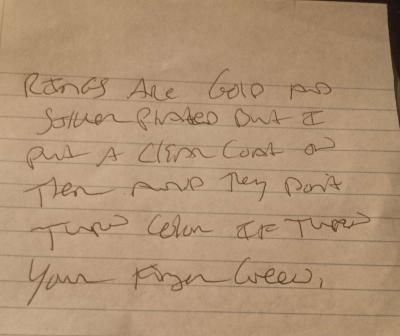 Rings Are Gold and
Silver Plated But I
Put A Clear Coat on
Them and They Don't
Turn Color If Turn
Your Finger Green,